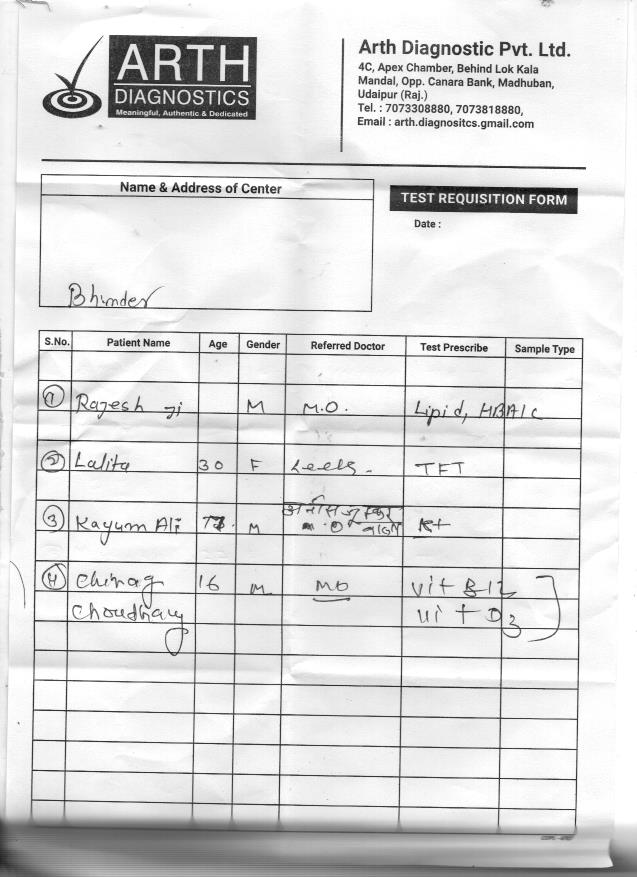 ARTH
DIAGNOSTICS
Meaningful, Authentic & Dedicated
Arth Diagnostic Pvt. Ltd.
4C, Apex Chamber, Behind Lok Kala
Mandal, Opp. Canara Bank, Madhuban,
Udaipur (Raj.)
Tel. : 7073308880, 7073818880,
Email : arth.diagnositcs.gmail.com
Name & Address of Center
TEST REQUISITION FORM
Date :
Bhinder
S.No. Patient Name Age Gender Referred Doctor Test Prescribe Sample Type
1 Rajesh Ji M M.O. Lipid, HBA1C
2 Lalita 30 F TFT
3 Kayum Ali M
4 Chirag 16 M MO Vit B12
Choudhary Vit D3